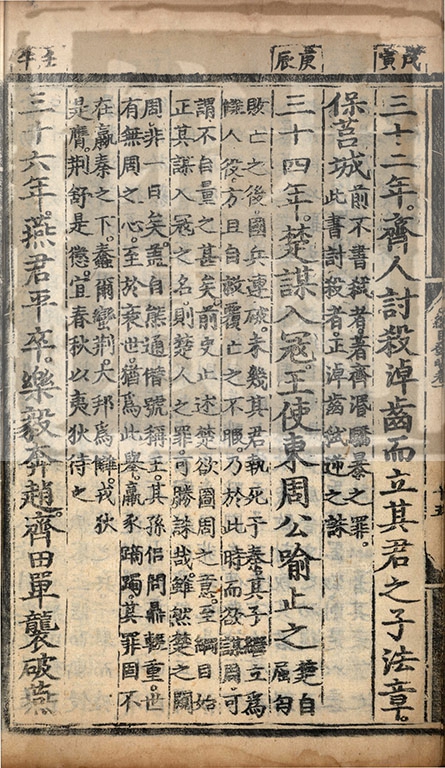 戊寅
三十二年。齊人討殺淖齒而立其君之子法章。
保莒城
前不書弑者著齊湣驕暴之罪。
此書討殺者正淖齒弑逆之誅
庚辰
三十四年。楚謀入寇。王使東周公喻止之
楚自
屈匄
敗亡之後。國兵連破。未幾其君執死于秦。其子繼立。為
讎人役。方且自救覆亡之不暇。乃於此時而欲謀周。可
謂不自量之甚矣。前史止述楚欲圖周之意。至綱目始
正其謀入寇之名。則楚人之罪。可勝誅哉。雖然楚之闚
周非一日矣。盖自熊通僭號稱王。其孫侶問鼎輕重。世
有無周之心。至於衰世。猶為此舉。羸豕蹢躅。其罪固不
在嬴秦之下。蠢爾蠻荆。犬邦為讎。戎狄
是膺。荆舒是懲。宜春秋以夷狄待之
壬午
三十六年。燕君平卒。樂毅奔趙。齊田單襲破燕